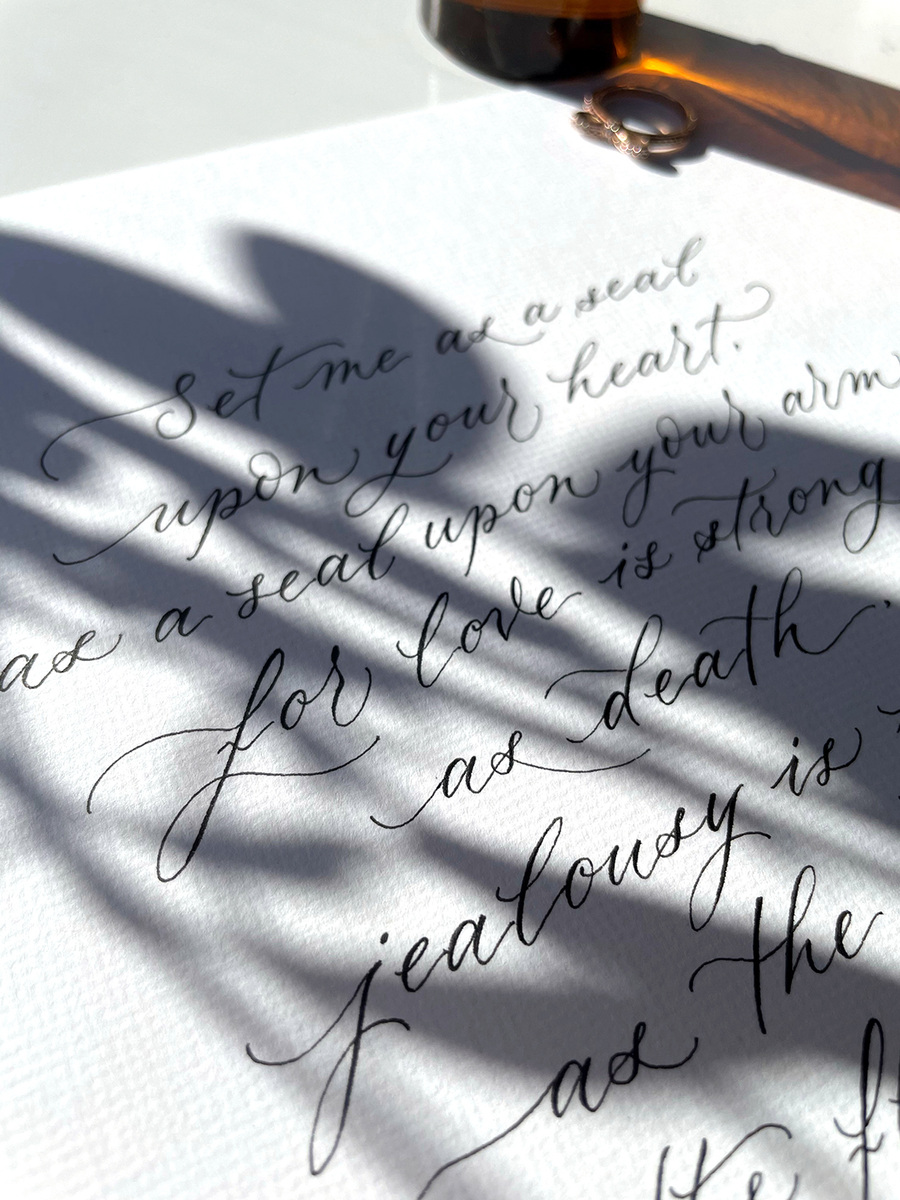 Set me as a seal
upon your heart.
as a seal upon your arm
for love is strong
as death.
jealousy is
as the
Its fl